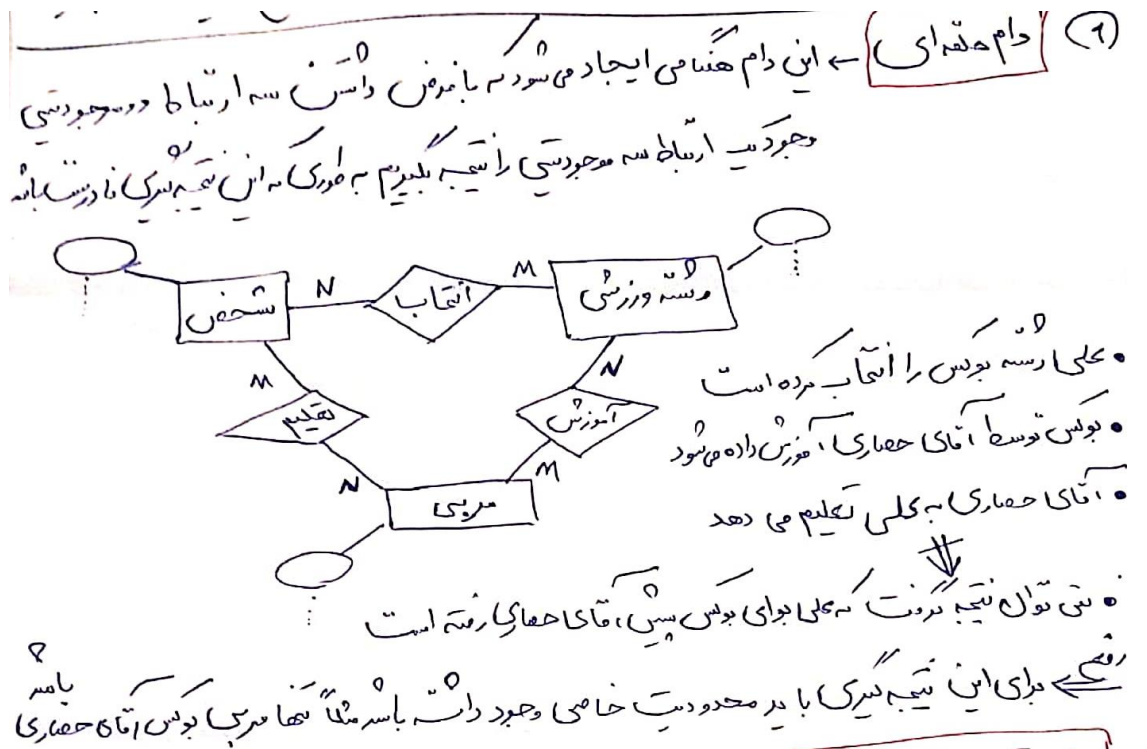 ① دام حلقه‌ای ← این دام هنگامی ایجاد می‌شود که با فرض داشتن سه ارتباط دوموجودیتی
وجود یک ارتباط سه موجودیتی را نتیجه بگیریم به طوری که این نتیجه‌گیری نادرست باشد
شخص N انتخاب M رشته ورزشی
M تعلیم N آموزش
N مربی M
• علی رشته بوکس را انتخاب کرده است
• بوکس توسط آقای حصاری آموزش داده می‌شود
• آقای حصاری به علی تعلیم می دهد
⇓
• نمی توان نتیجه گرفت که علی برای بوکس پیش آقای حصاری رفته است
رفع ⇐ برای این نتیجه گیری باید محدودیت خاصی وجود داشته باشد مثلاً تنها مربی بوکس آقای حصاری باشد